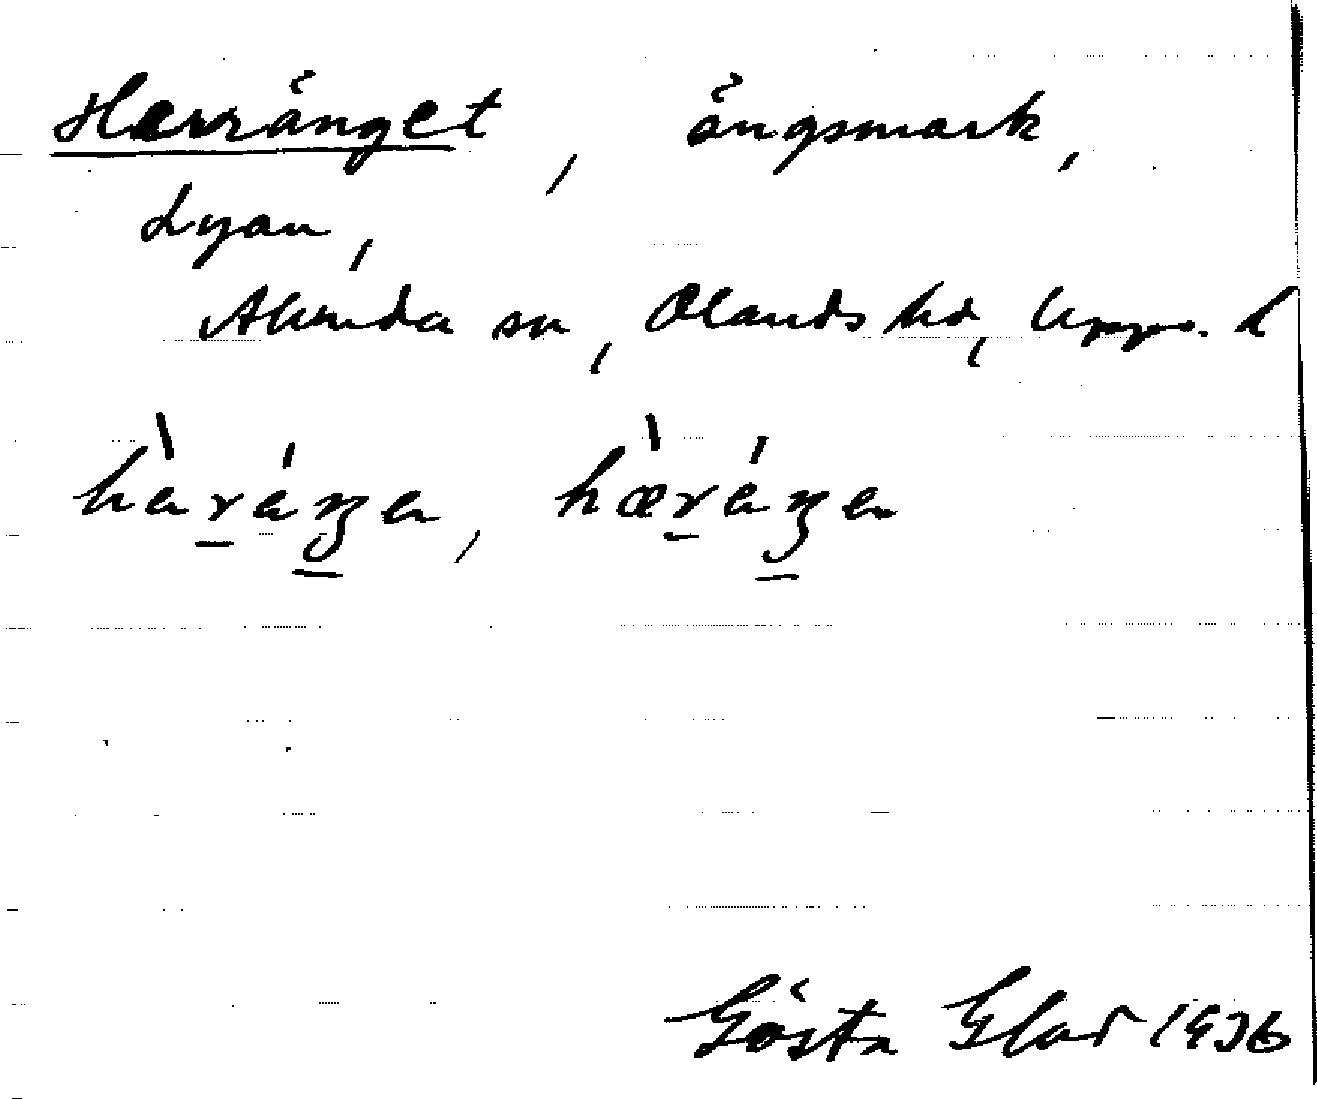 Herränget, ängsmark,
Lyan,
Alunda sn, Olands hd, Upps. l
hèraŋ́en, hæ̀raŋ́en
Gösta 1936